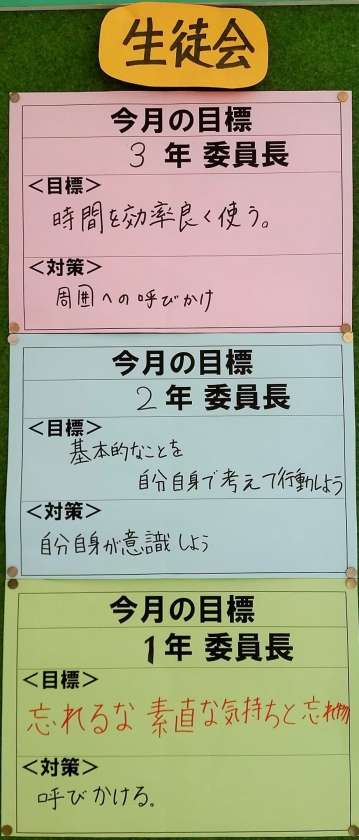 生徒会
今月の目標
3 年 委員長
<目標>
時間を効率良く使う。
<対策>
周囲への呼びかけ
今月の目標
2 年 委員長
<目標>
基本的なことを
自分自身で考えて行動しよう
<対策>
自分自身が意識しよう
今月の目標
1 年 委員長
<目標>
忘れるな 素直な気持ちと忘れ物
<対策>
呼びかける。